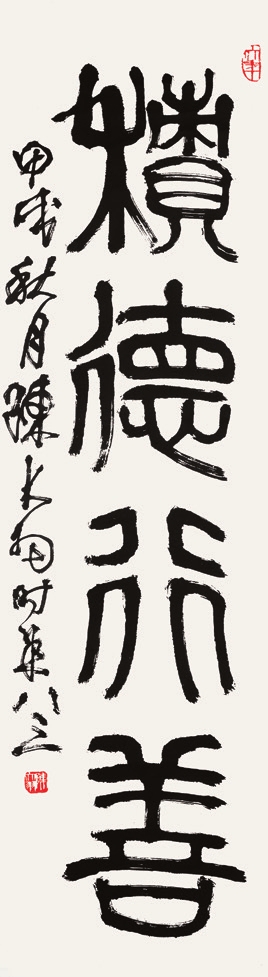 積德行善
甲戌秋月陳大羽时年八三